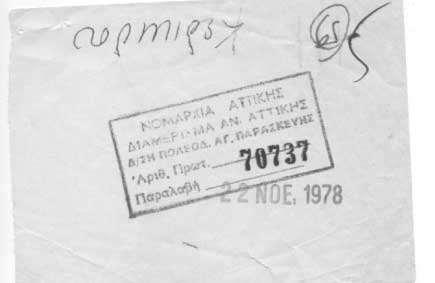 65
ΝΟΜΑΡΧΙΑ ΑΤΤΙΚΗΣ
ΔΙΑΜΕΡΙΣΜΑ ΑΝ. ΑΤΤΙΚΗΣ
Δ/ΣΗ ΠΟΛΕΟΔ. ΑΓ. ΠΑΡΑΣΚΕΥΗΣ
Ἀριθ. Πρωτ. 70737
Παραλαβή 22 ΝΟΕ. 1978